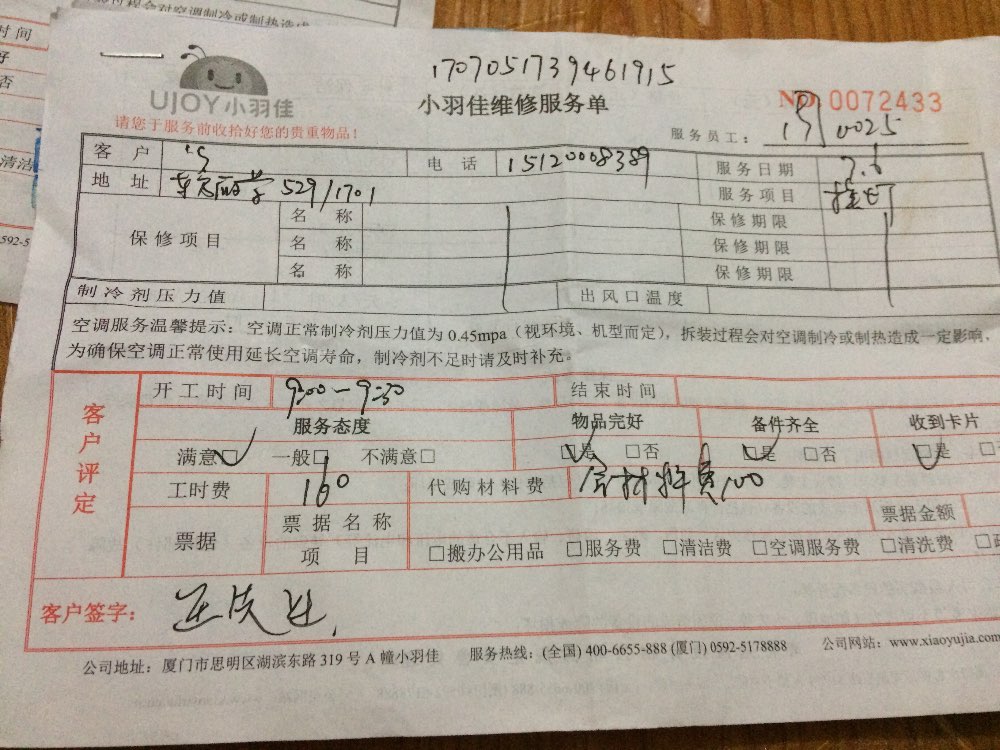 17070517394619​15
UJOY小羽佳
小羽佳维修服务单
NO.0072433
请您于服务前收拾好您的贵重物品！
服务员工： 0025
客 户 电 话 15120008389 服务日期 7.6
地 址 529/1701 服务项目
保修项目 名 称 保修期限
名 称 保修期限
名 称 保修期限
制冷剂压力值 出风口温度
空调服务温馨提示：空调正常制冷剂压力值为 0.45mpa（视环境、机型而定），拆装过程会对空调制冷或制热造成一定影响，
为确保空调正常使用延长空调寿命，制冷剂不足时请及时补充。
客户评定
开工时间 9:00-9:30 结束时间
服务态度 物品完好 备件齐全 收到卡片
满意□ 一般□ 不满意□ □是 □否 □是 □否 □是 □
工时费 160 代购材料费 含材料费100
票据 票据名称 票据金额
项 目 □搬办公用品 □服务费 □清洁费 □空调服务费 □清洗费
客户签字：
公司地址：厦门市思明区湖滨东路 319 号 A 幢小羽佳 服务热线：(全国) 400-6655-888 (厦门) 0592-5178888 公司网站：www.xiaoyujia.com
时间
好
否
清洁
0592-5